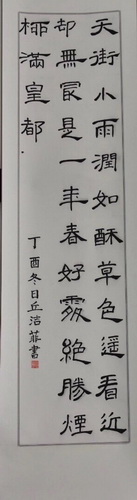 天街小雨潤如酥草色遥看近
却無冣是一年春好處絶勝煙
柳滿皇都
丁酉冬日丘洁蓀書